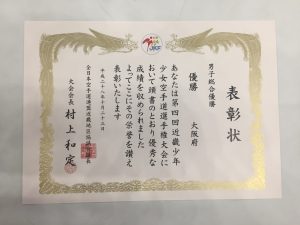 表彰状
男子総合優勝
優勝　大阪府
あなたは第四回近畿少年
少女空手道選手権大会に
おいて頭書のとおり優秀な
成績を収められました
よってここにその栄誉を讃え
表彰いたします
平成二十八年十月二十三日
全日本空手道連盟近畿地区協議会議長
大会会長　村上和定
JKF